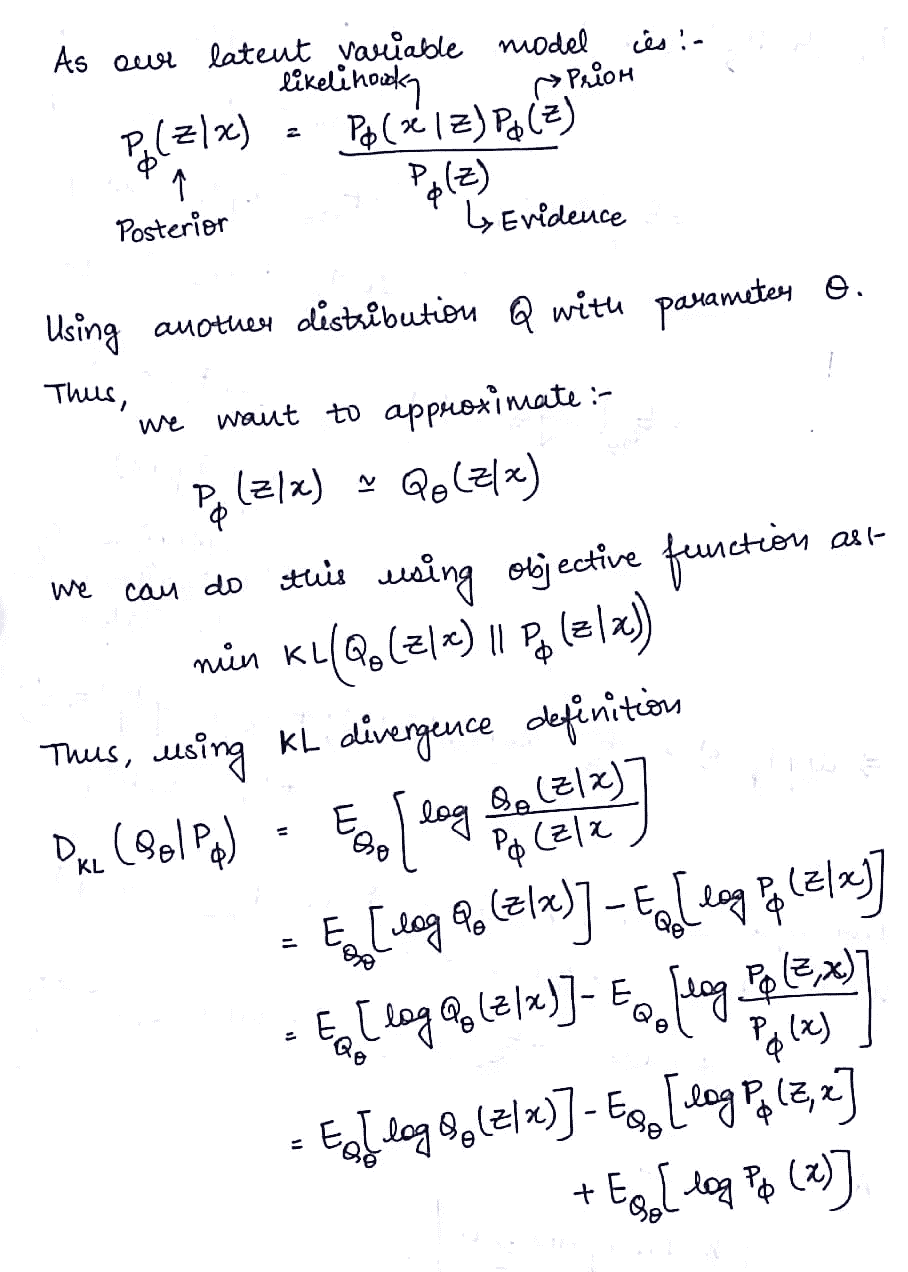 As our latent variable model is :-
likelihood → Prior
P_φ(z|x) = P_φ(x|z) P_φ(z) / P_φ(z)
↑
Posterior ↳ Evidence
Using another distribution Q with parameter θ.
Thus,
we want to approximate :-
P_φ(z|x) ≃ Q_θ(z|x)
we can do this using objective function as :-
min KL(Q_θ(z|x) || P_φ(z|x))
Thus, using KL divergence definition
D_KL(Q_θ|P_φ) = E_Q_θ[log Q_θ(z|x) / P_φ(z|x]
= E_Q_θ[log Q_θ(z|x)] - E_Q_θ[log P_φ(z|x)]
= E_Q_θ[log Q_θ(z|x)] - E_Q_θ[log P_φ(z,x) / P_φ(x)]
= E_Q_θ[log Q_θ(z|x)] - E_Q_θ[log P_φ(z,x]
+ E_Q_θ[log P_φ(x)]